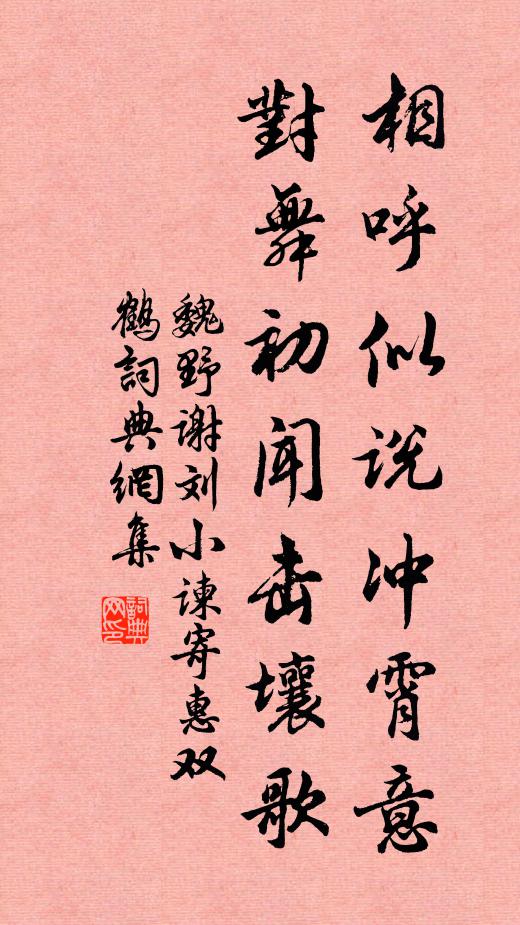 相呼似说冲霄意
對舞初闻击壤歌
魏野谢刘小谏寄惠双
鶴詞典網集
詞典网印